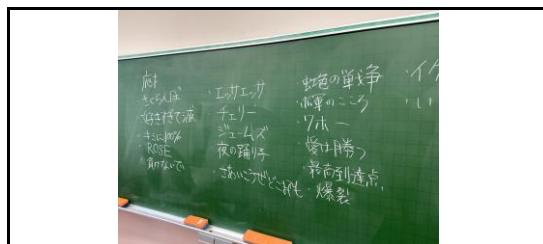 さくらんぼ
・好きすぎて滅
・キミに100%
・ROSE
・負けないで
・エッサエッサ
・チェリー
・ジェームズ
・夜の踊り子
・さあいこうぜどこまでも
・虹色の戦争
のこころ
・ワホー
・愛は勝つ
・最高到達点
・爆裂
・イケ
・い